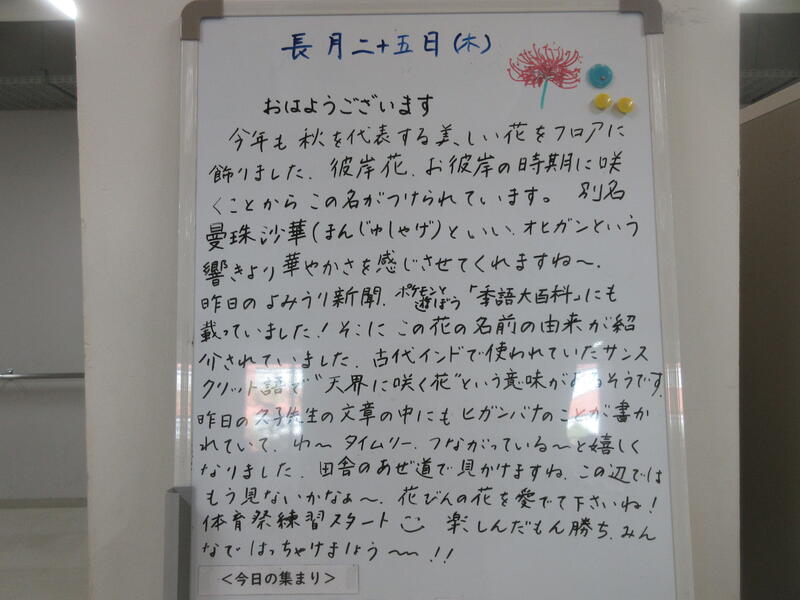 長月二十五日(木)
おはようございます
今年も秋を代表する美しい花をフロアに
飾りました。彼岸花、お彼岸の時期に咲
くことからこの名がつけられています。 別名
曼珠沙華(まんじゅしゃげ)といい、オヒガンという
響きより華やかさを感じさせてくれますね〜。
昨日のよみうり新聞、ポケモンと遊ぼう「季語大百科」にも
載っていました!そこにこの花の名前の由来が紹
介されていました。古代インドで使われていたサンス
クリット語で"天界に咲く花"という意味があるそうです。
昨日の久子先生の文章の中にもヒガンバナのことが書か
れていて、わ〜タイムリー、つながっている〜と嬉しく
なりました。田舎のあぜ道で見かけますね。この辺では
もう見ないかなぁ〜。花びんの花を愛でて下さいね!
体育祭練習スタート 楽しんだもん勝ち、みん
なではっちゃけましょう〜!!
<今日の集まり>